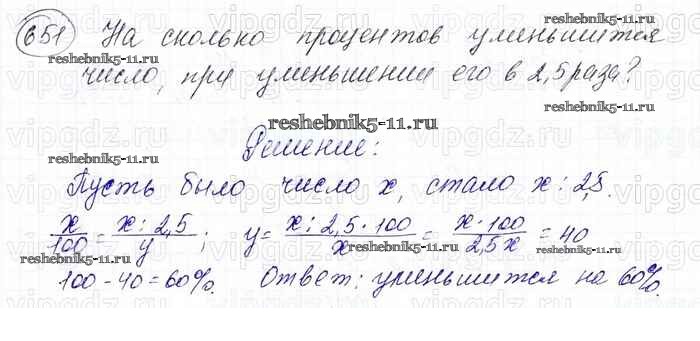 651 На сколько процентов уменьшится
число, при уменьшении его в 2,5 раза?
Решение:
Пусть было число x, стало x : 2,5.
x/100 = x : 2,5/y ; y = x : 2,5 · 100/x = x · 100/2,5x = 40
100 - 40 = 60%. Ответ: уменьшится на 60%.
reshebnik5-11.ru
reshebnik5-11.ru
reshebnik5-11.ru
reshebnik5-11.ru
reshebnik5-11.ru
reshebnik5-11.ru
reshebnik5-11.ru